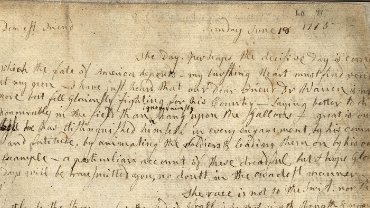 Dearest Friend Sunday June 18 1775
The Day perhaps the decisive Day is come
which the fate of America depends my bursting Heart must find vent
at my pen I have just heard that our dear Friend Dr Warren is no
more but fell gloriously fighting for his Country — saying better to die
honourably in the field than ignominiously hang upon the Gallows — great is our
he has distinguished himself in every engagement, by his courage
and fortitude, by animating the soldiers & leading them on by his own
example — a particuliar account of these dreadful, but I hope glorious
Days will be transmitted you, no doubt in the exactest manner
The race is not to the swift, nor the